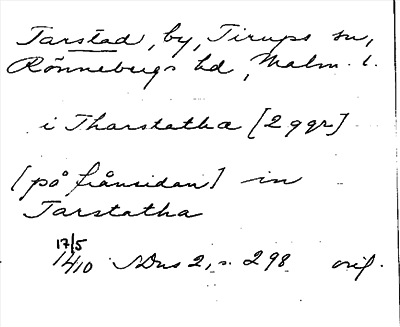 Tarstad, by, Tirups sn,
Rönnebergs hd, Malm. l.
i Tharstatha [2 ggr]
[på frånsidan] in
Tarstatha
17/5
1410 SDns 2, s. 298 orig.